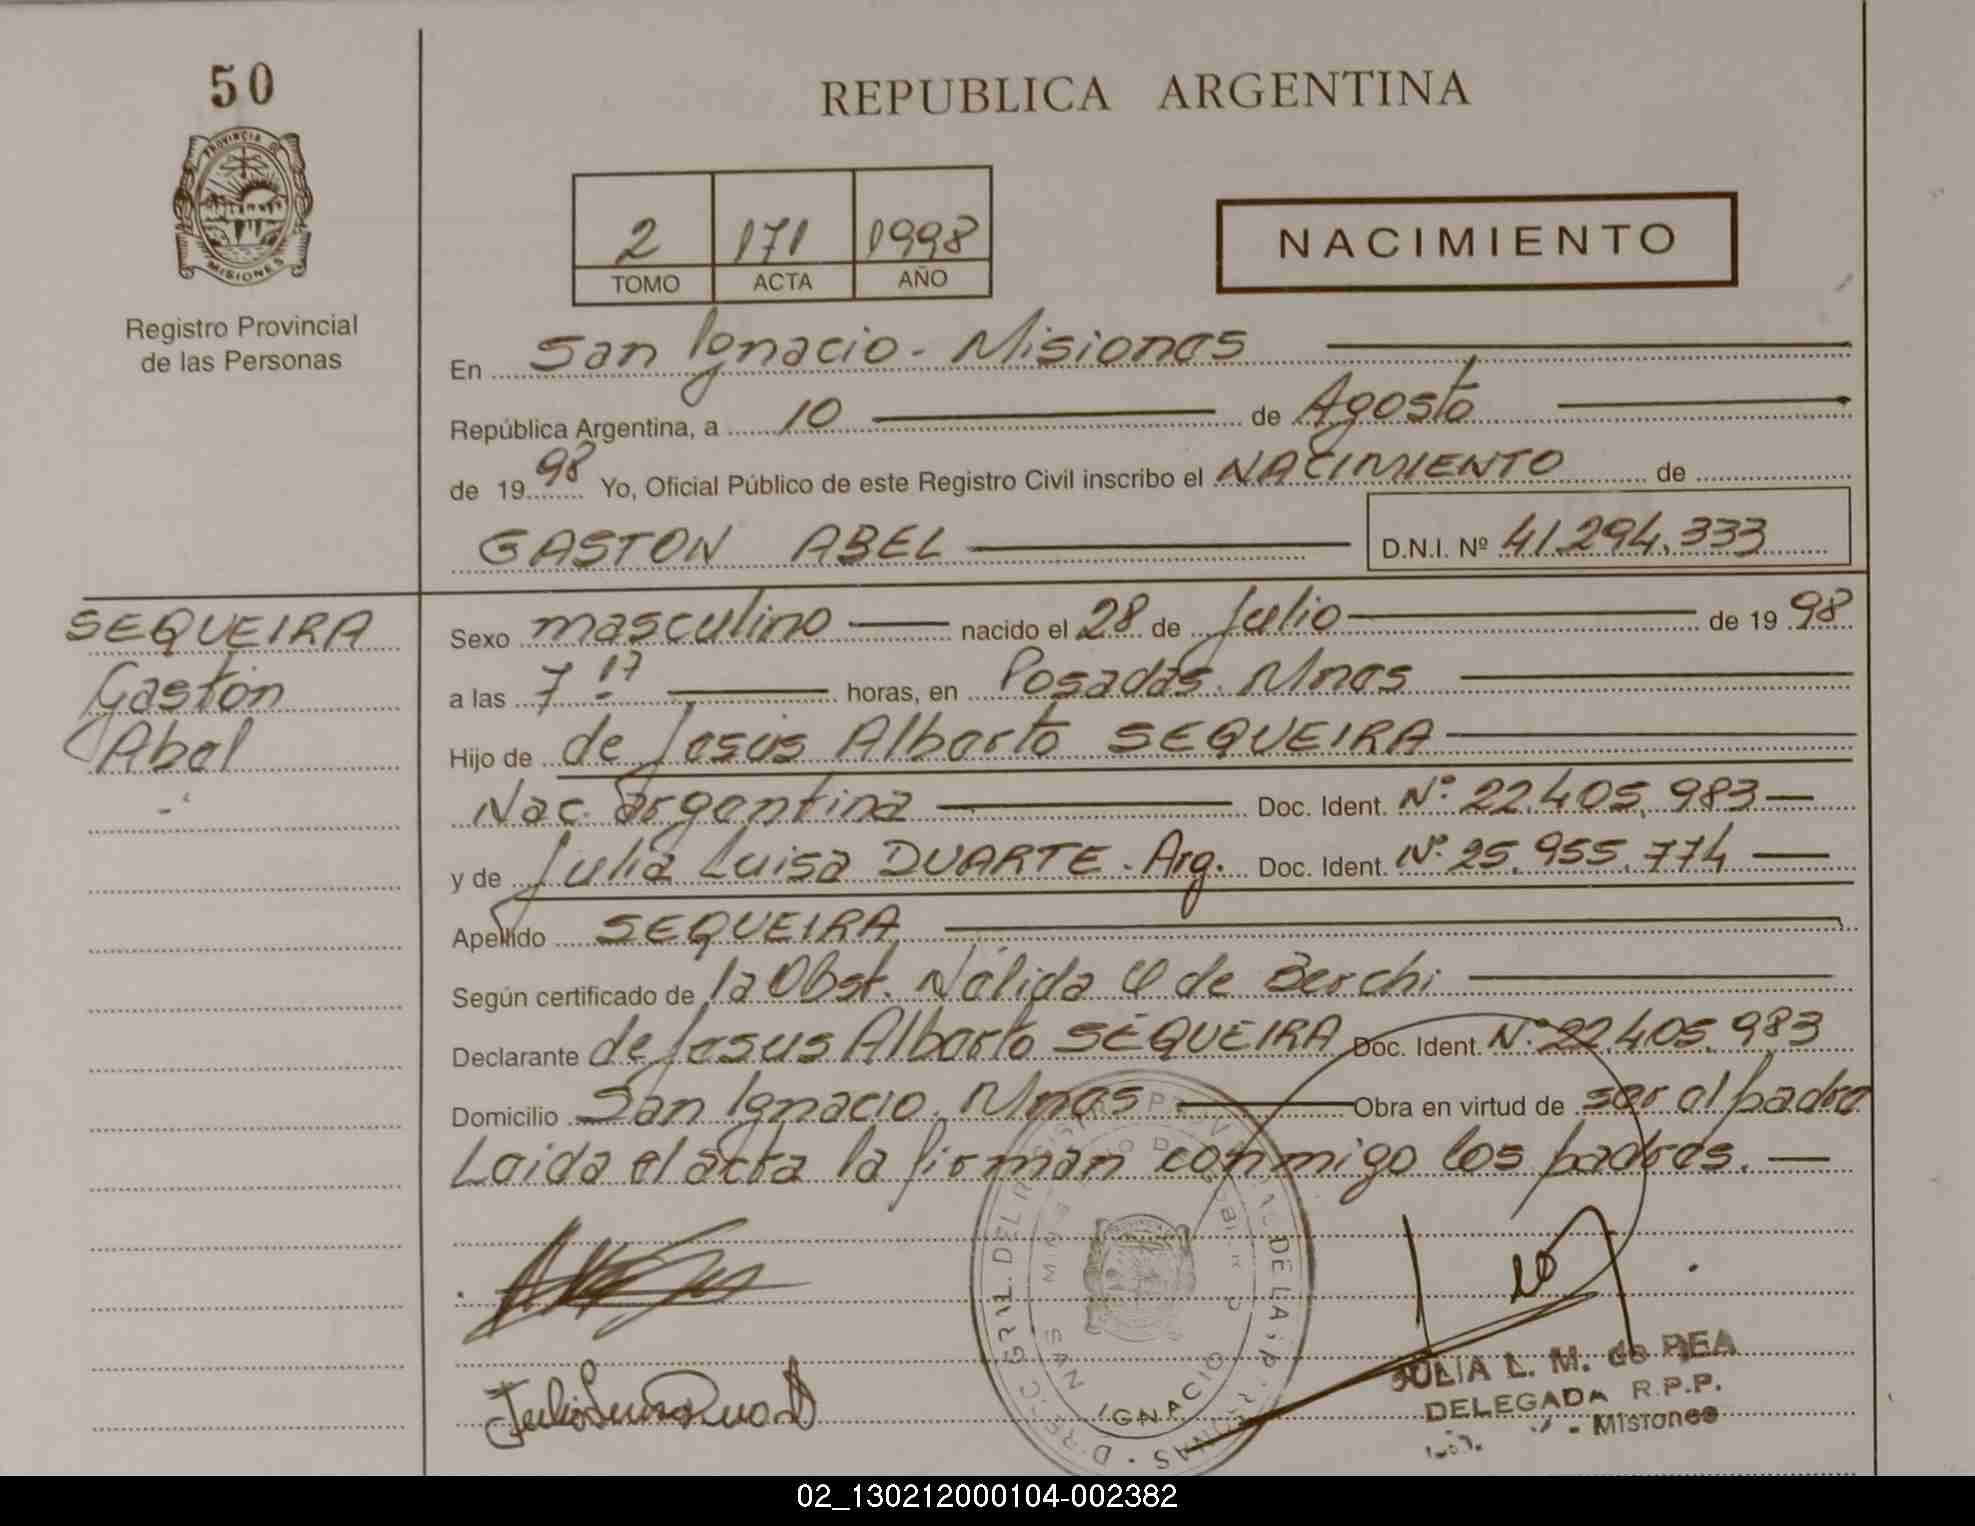 50
PROVINCIA DE
MISIONES
Registro Provincial
de las Personas
REPUBLICA ARGENTINA
2 171 1998
TOMO ACTA AÑO
NACIMIENTO
En San Ignacio - Misiones
República Argentina, a 10 de Agosto
de 1998 Yo, Oficial Público de este Registro Civil inscribo el NACIMIENTO de
GASTON ABEL D.N.I. Nº 41.294.333
SEQUEIRA
Gastón
Abel
Sexo masculino nacido el 28 de Julio de 1998
a las 7 17 horas, en Posadas. Mnes
Hijo de de Jesús Alberto SEQUEIRA
Nac. argentina Doc. Ident. Nº 22.405.983
y de Julia Luisa DUARTE. Arg. Doc. Ident. Nº 25.955.774
Apellido SEQUEIRA
Según certificado de la Obst. Nélida de Berchi
Declarante de Jesus Alberto SEQUEIRA Doc. Ident. Nº 22.405.983
Domicilio San Ignacio. Mnes Obra en virtud de ser el padre
Leida el acta la firman conmigo los padres.
SAN IGNACIO
JULIA L. M. de REA
DELEGADA R.P.P.
- Misiones
02_130212000104-002382